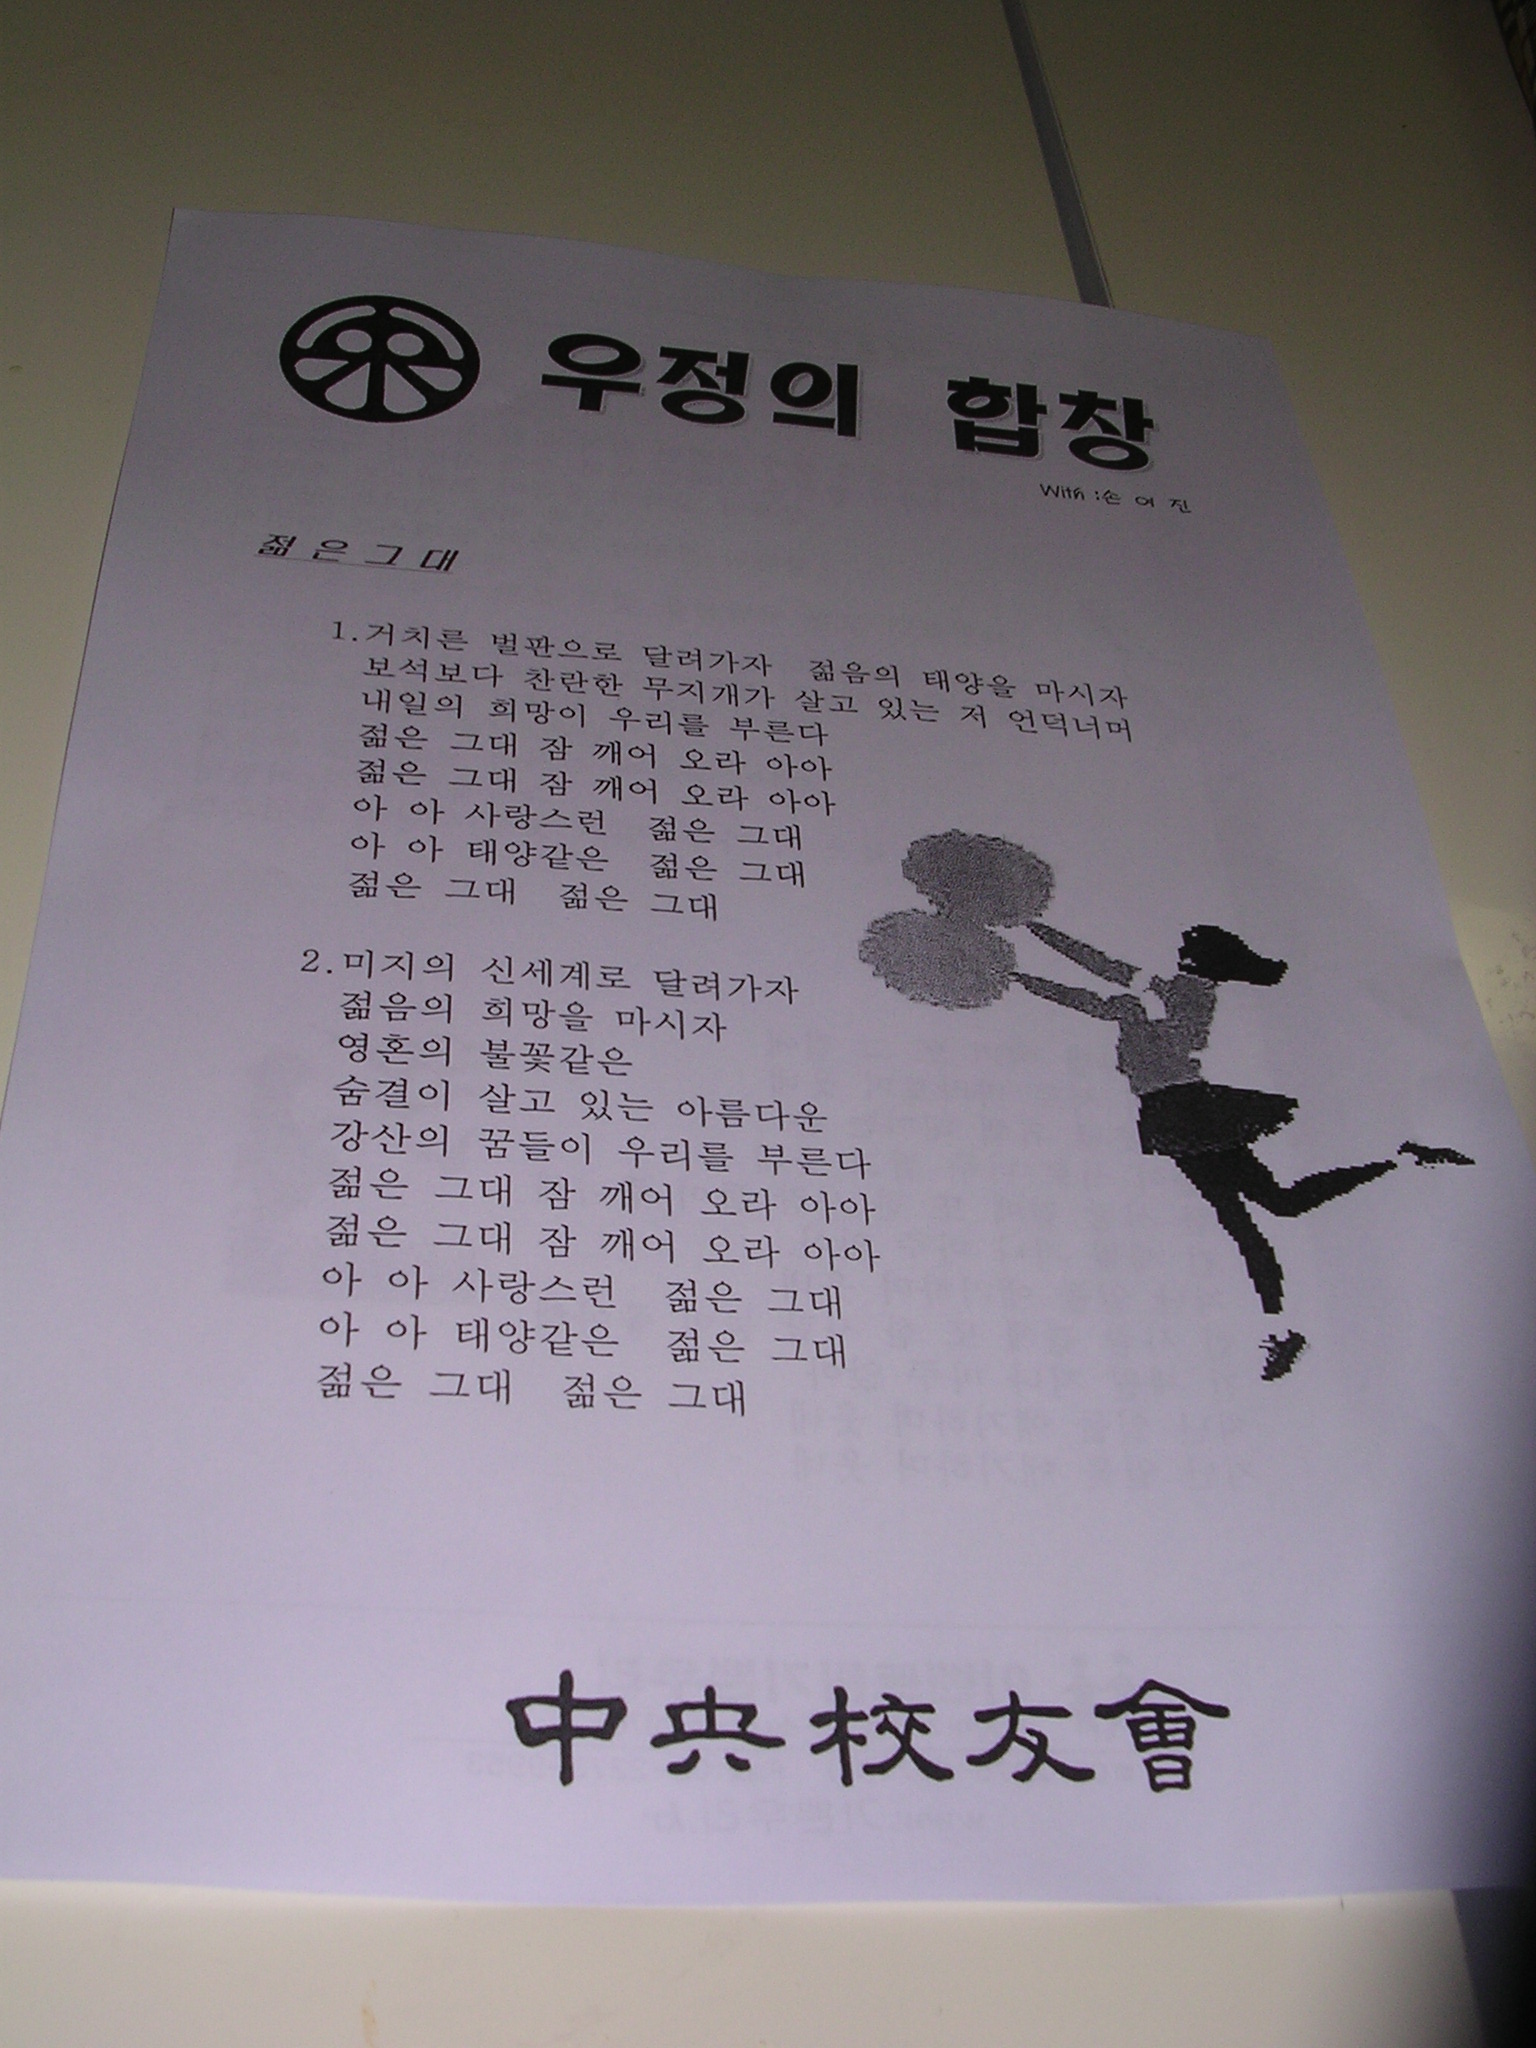 우정의 합창
With :손 여 진
젊 은 그 대
1.거치른 벌판으로 달려가자 젊음의 태양을 마시자
보석보다 찬란한 무지개가 살고 있는 저 언덕너머
내일의 희망이 우리를 부른다
젊은 그대 잠 깨어 오라 아아
젊은 그대 잠 깨어 오라 아아
아 아 사랑스런 젊은 그대
아 아 태양같은 젊은 그대
젊은 그대 젊은 그대
2.미지의 신세계로 달려가자
젊음의 희망을 마시자
영혼의 불꽃같은
숨결이 살고 있는 아름다운
강산의 꿈들이 우리를 부른다
젊은 그대 잠 깨어 오라 아아
젊은 그대 잠 깨어 오라 아아
아 아 사랑스런 젊은 그대
아 아 태양같은 젊은 그대
젊은 그대 젊은 그대
中央校友會